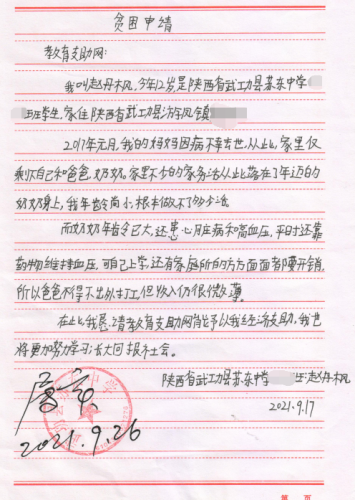 贫困申请
教育支助网:
我叫赵丹枫,今年12岁是陕西省武功县苏东中学
班学生,家住陕西省武功县游凤镇
2017年元月,我的妈妈因病不幸去世,从此,家里仅
剩下自己和爸爸,奶奶,家里不少的家务活从此落在了年迈的
奶奶身上,我年龄尚小,根本做不了多少活
而奶奶年龄已大,还患心脏病和高血压,平时还靠
药物维持血压,可自己上学,还有家庭所的方方面面者要开销,
所以爸爸不得不出外打工,但收入仍很微薄。
在此,我恳请教育支助网能予以我经济支助,我也
将更加努力学习,长大回报社会。
陕西省武功县苏东中学 生:赵丹枫
2021.9.17
2021.9.26
第 页